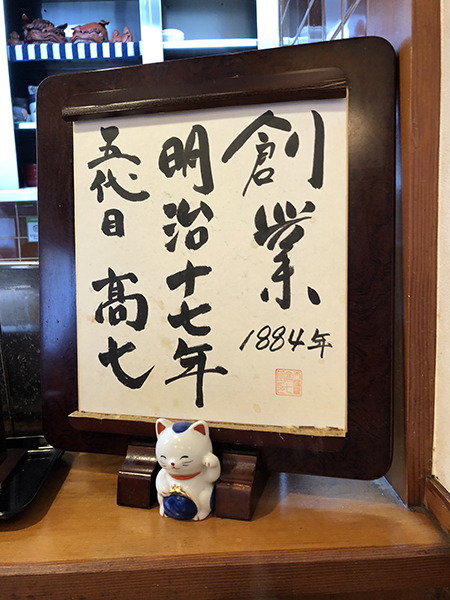 創業
1884年
明治十七年
五代目 髙七